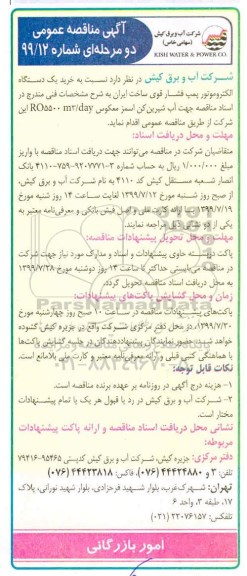 شرکت آب و برق کیش
(سهامی خاص)
KISH WATER & POWER CO.
آگهی مناقصه عمومی
دو مرحله‌ای شماره ۹۹/۱۲
شرکت آب و برق کیش در نظر دارد نسبت به خرید یک دستگاه
الکتروموتور پمپ فشار قوی ساخت ایران به شرح مشخصات فنی مندرج در
اسناد مناقصه جهت آب شیرین‌کن اسمز معکوس RO۵۵۰۰ m۳/day این
شرکت از طریق مناقصه عمومی اقدام نماید.
مهلت و محل دریافت اسناد:
متقاضیان شرکت در مناقصه می‌توانند جهت دریافت اسناد مناقصه با واریز
مبلغ ۱/۰۰۰/۰۰۰ ریال به حساب شماره ۳-۹۲۰۷۷۷۱-۷۵۹-۴۱۱۰ بانک
انصار شعبه مستقل کیش کد ۴۱۱۰ به نام شرکت آب و برق کیش،
از صبح روز شنبه مورخ ۱۳۹۹/۷/۱۲ لغایت ساعت ۱۴ روز شنبه مورخ
۱۳۹۹/۷/۱۹ با اصل فیش بانکی و معرفی‌نامه معتبر به
یکی از دو مراجعه نمایند.
مهلت و محل تحویل پیشنهادات مناقصه:
پاکت حاوی پیشنهادات و اسناد و مدارک مورد نیاز جهت شرکت
در مناقصه می‌بایستی حداکثر تا ساعت ۱۴ روز دوشنبه مورخ ۱۳۹۹/۷/۲۸
به محل دریافت اسناد مناقصه تحویل گردد.
زمان و محل گشایش پاکت‌های پیشنهادات:
پاکت‌های پیشنهادات مناقصه در ساعت ۱۰ صبح روز چهارشنبه مورخ
۱۳۹۹/۷/۳۰، در محل دفتر مرکزی شرکت واقع در جزیره کیش گشوده
خواهد شد. حضور نمایندگان پیشنهاددهندگان در جلسه گشایش پاکت‌ها
با هماهنگی کتبی قبلی و ارائه معرفی‌نامه معتبر و کارت ملی بلامانع است.
نکات قابل توجه:
۱- هزینه درج آگهی در روزنامه بر عهده برنده مناقصه است.
۲- شرکت آب و برق کیش در رد یا قبول هر یک یا تمام پیشنهادات
مختار است.
نشانی محل دریافت اسناد مناقصه و ارائه پاکت پیشنهادات
مربوطه:
دفتر مرکزی: جزیره کیش، شرکت آب و برق کیش کدپستی ۹۵۴۶۵-۷۹۴۱۶
تلفن: ۳ و ۴۴۴۲۴۸۸۰ (۰۷۶)، فاکس: ۴۴۴۲۳۸۱۸ (۰۷۶)
تهران: شهرک‌غرب، بلوار شهید فرحزادی، بلوار شهید نورانی، پلاک
۱۷، طبقه ۳، واحد ۶
تلفکس: ۲۲۰۷۶۱۵۷ (۰۲۱)
امور بازرگانی